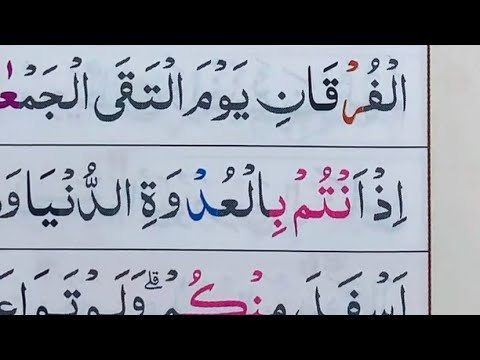 الْفُرْقَانِ يَوْمَ الْتَقَى الْجَمْعٰ
اِذْ اَنْتُمْ بِالْعُدْوَةِ الدُّنْيَا وَ
اَسْفَلَ مِنْكُمْ ؕ وَلَوْ تَوَاعَ